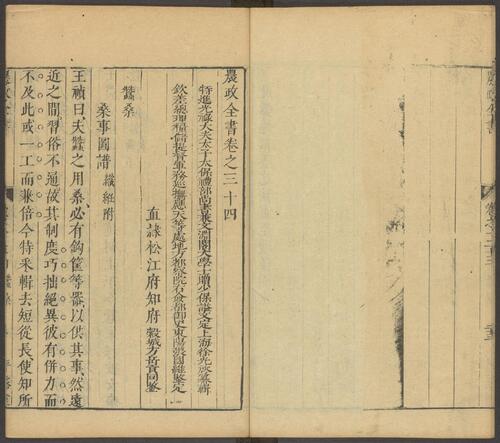 農政全書卷之三十四
特進光祿大夫太子太保禮部尚書兼文淵閣大學士贈少保謚文定上海徐光啟纂輯
欽差總理糧儲提督軍務巡撫應天等處地方都察院右僉都御史東陽張國維鑒定
直隸松江府知府穀城方岳貢同鑒
蠶桑
桑事圖譜 織絍附
王禎曰夫蠶之用桑必有鈎筐等器以供其事然遠
近之間習俗不通故其制度巧拙絕異彼有併力而
不及此或一工而兼倍今特采輯去短從長使知所